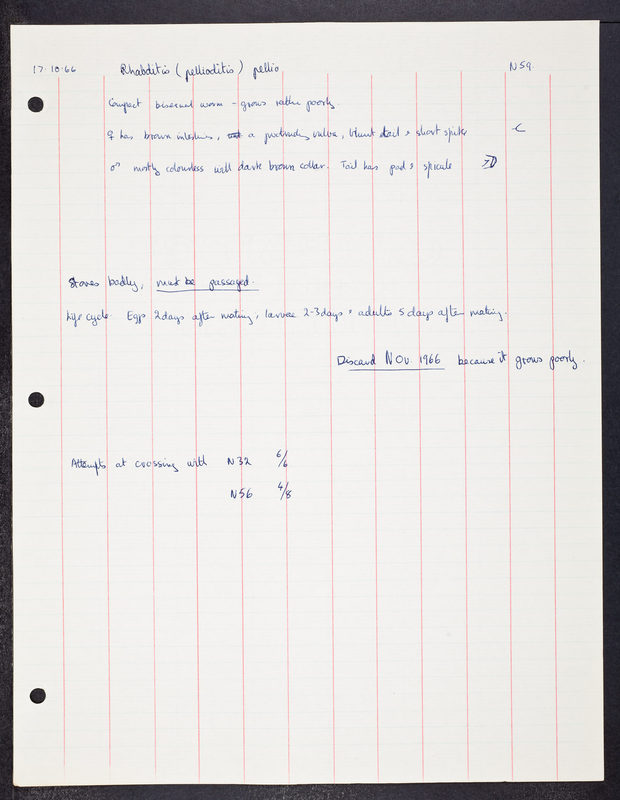 17.10.66 Rhabditis (pellioditis) pellio N59.
Compact bisexual worm - grows rather poorly.
♀ has brown intestines, a protruding vulva, blunt tail & short spike
♂ mostly colourless with dark brown collar. Tail has pad & spicule
Stores badly, must be passaged.
Life cycle. Eggs 2 days after mating, larvae 2-3 days & adults 5 days after mating.
Discard NOV. 1966 because it grows poorly.
Attempts at crossing with N32 6/6
N56 4/8